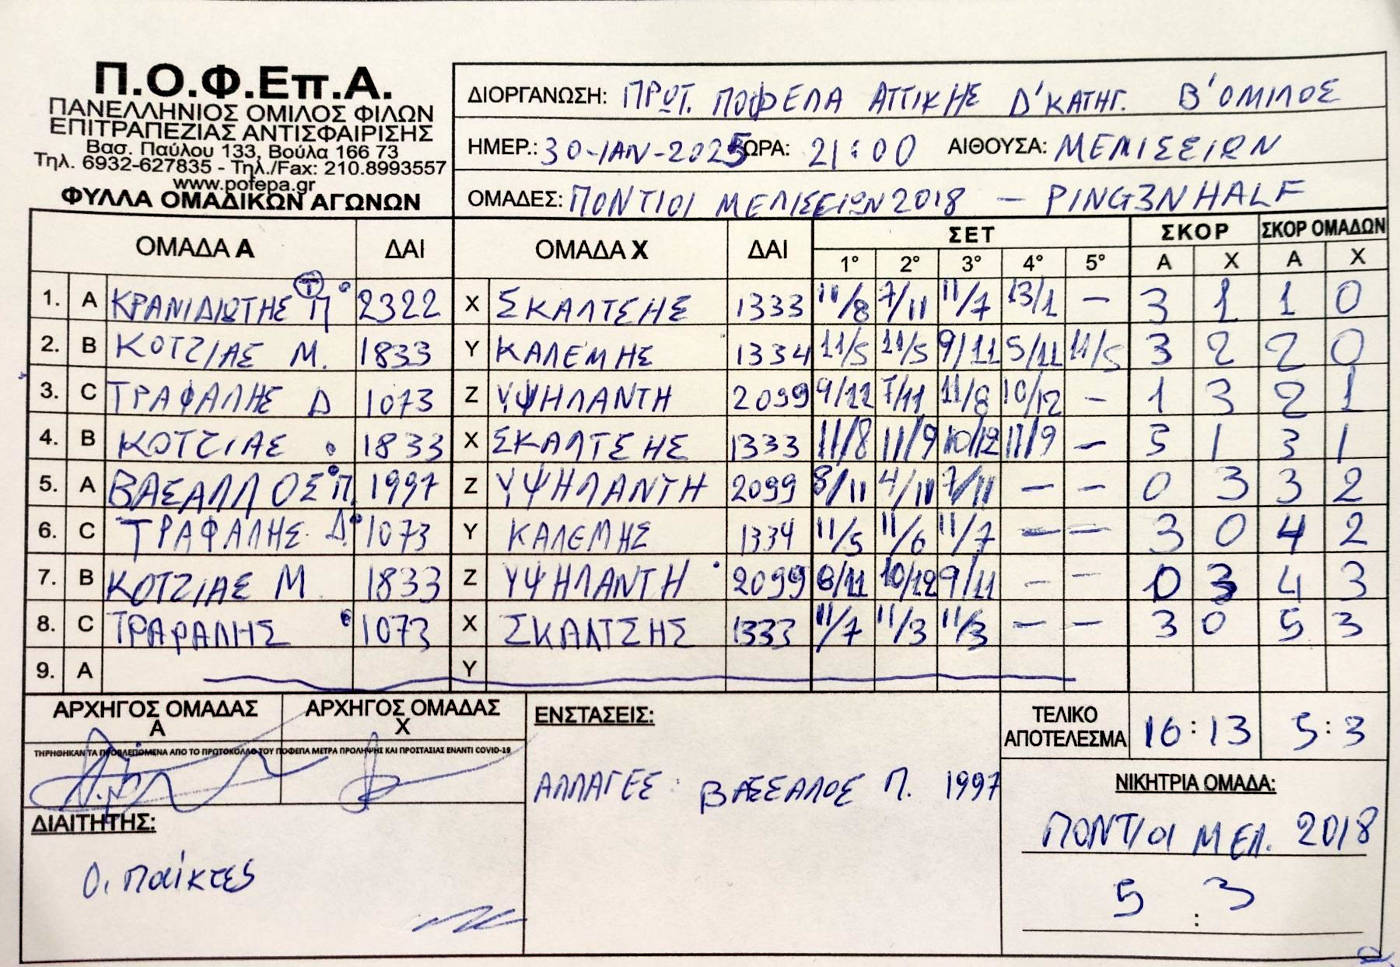 Π.Ο.Φ.Επ.Α.
ΠΑΝΕΛΛΗΝΙΟΣ ΟΜΙΛΟΣ ΦΙΛΩΝ
ΕΠΙΤΡΑΠΕΖΙΑΣ ΑΝΤΙΣΦΑΙΡΙΣΗΣ
Βασ. Παύλου 133, Βούλα 166 73
Τηλ. 6932-627835 - Τηλ./Fax: 210.8993557
www.pofepa.gr
ΦΥΛΛΑ ΟΜΑΔΙΚΩΝ ΑΓΩΝΩΝ
ΔΙΟΡΓΑΝΩΣΗ: ΠΡΩΤ. ΠΟΦΕΠΑ ΑΤΤΙΚΗΣ Δ' ΚΑΤΗΓ. Β' ΟΜΙΛΟΣ
ΗΜΕΡ.: 30-ΙΑΝ-2025 ΩΡΑ: 21:00 ΑΙΘΟΥΣΑ: ΜΕΛΙΣΣΙΩΝ
ΟΜΑΔΕΣ: ΠΟΝΤΙΟΙ ΜΕΛΙΣΣΙΩΝ 2018 - PING3NHALF
ΟΜΑΔΑ Α ΔΑΙ ΟΜΑΔΑ Χ ΔΑΙ ΣΕΤ ΣΚΟΡ ΣΚΟΡ ΟΜΑΔΩΝ
1° 2° 3° 4° 5° Α Χ Α Χ
1. A ΚΡΑΝΙΔΙΩΤΗΣ Π Τ 2322 X ΣΚΑΛΤΣΗΣ 1333 11/8 7/11 11/7 13/1 - 3 1 1 0
2. B ΚΟΤΖΙΑΣ Μ. 1833 Y ΚΑΛΕΜΗΣ 1334 11/5 11/5 9/11 5/11 11/5 3 2 2 0
3. C ΤΡΑΦΑΛΗΣ Δ 1073 Z ΥΨΗΛΑΝΤΗ 2099 9/11 7/11 11/8 10/12 - 1 3 2 1
4. B ΚΟΤΖΙΑΣ 1833 X ΣΚΑΛΤΣΗΣ 1333 11/8 11/9 10/12 11/9 - 3 1 3 1
5. A ΒΑΣΑΛΛΟΣ Π. 1997 Z ΥΨΗΛΑΝΤΗ 2099 8/11 4/11 7/11 - - 0 3 3 2
6. C ΤΡΑΦΑΛΗΣ Δ. 1073 Y ΚΑΛΕΜΗΣ 1334 11/5 11/6 11/7 - - 3 0 4 2
7. B ΚΟΤΖΙΑΣ Μ 1833 Z ΥΨΗΛΑΝΤΗ 2099 8/11 10/12 9/11 - - 0 3 4 3
8. C ΤΡΑΦΑΛΗΣ 1073 X ΣΚΑΛΤΣΗΣ 1333 11/7 11/3 11/3 - - 3 0 5 3
9. A Y
ΑΡΧΗΓΟΣ ΟΜΑΔΑΣ Α ΑΡΧΗΓΟΣ ΟΜΑΔΑΣ Χ
ΤΗΡΗΘΗΚΑΝ ΤΑ ΠΡΟΒΛΕΠΟΜΕΝΑ ΑΠΟ ΤΟ ΠΡΩΤΟΚΟΛΛΟ ΤΟΥ ΠΟΦΕΠΑ ΜΕΤΡΑ ΠΡΟΛΗΨΗΣ ΚΑΙ ΠΡΟΣΤΑΣΙΑΣ ΕΝΑΝΤΙ COVID-19
ΔΙΑΙΤΗΤΗΣ:
Οι παίκτες
ΕΝΣΤΑΣΕΙΣ:
ΑΛΛΑΓΕΣ: ΒΑΣΣΑΛΟΣ Π. 1997
ΤΕΛΙΚΟ ΑΠΟΤΕΛΕΣΜΑ 16:13 5:3
ΝΙΚΗΤΡΙΑ ΟΜΑΔΑ:
ΠΟΝΤΙΟΙ ΜΕΛ. 2018
5 : 3